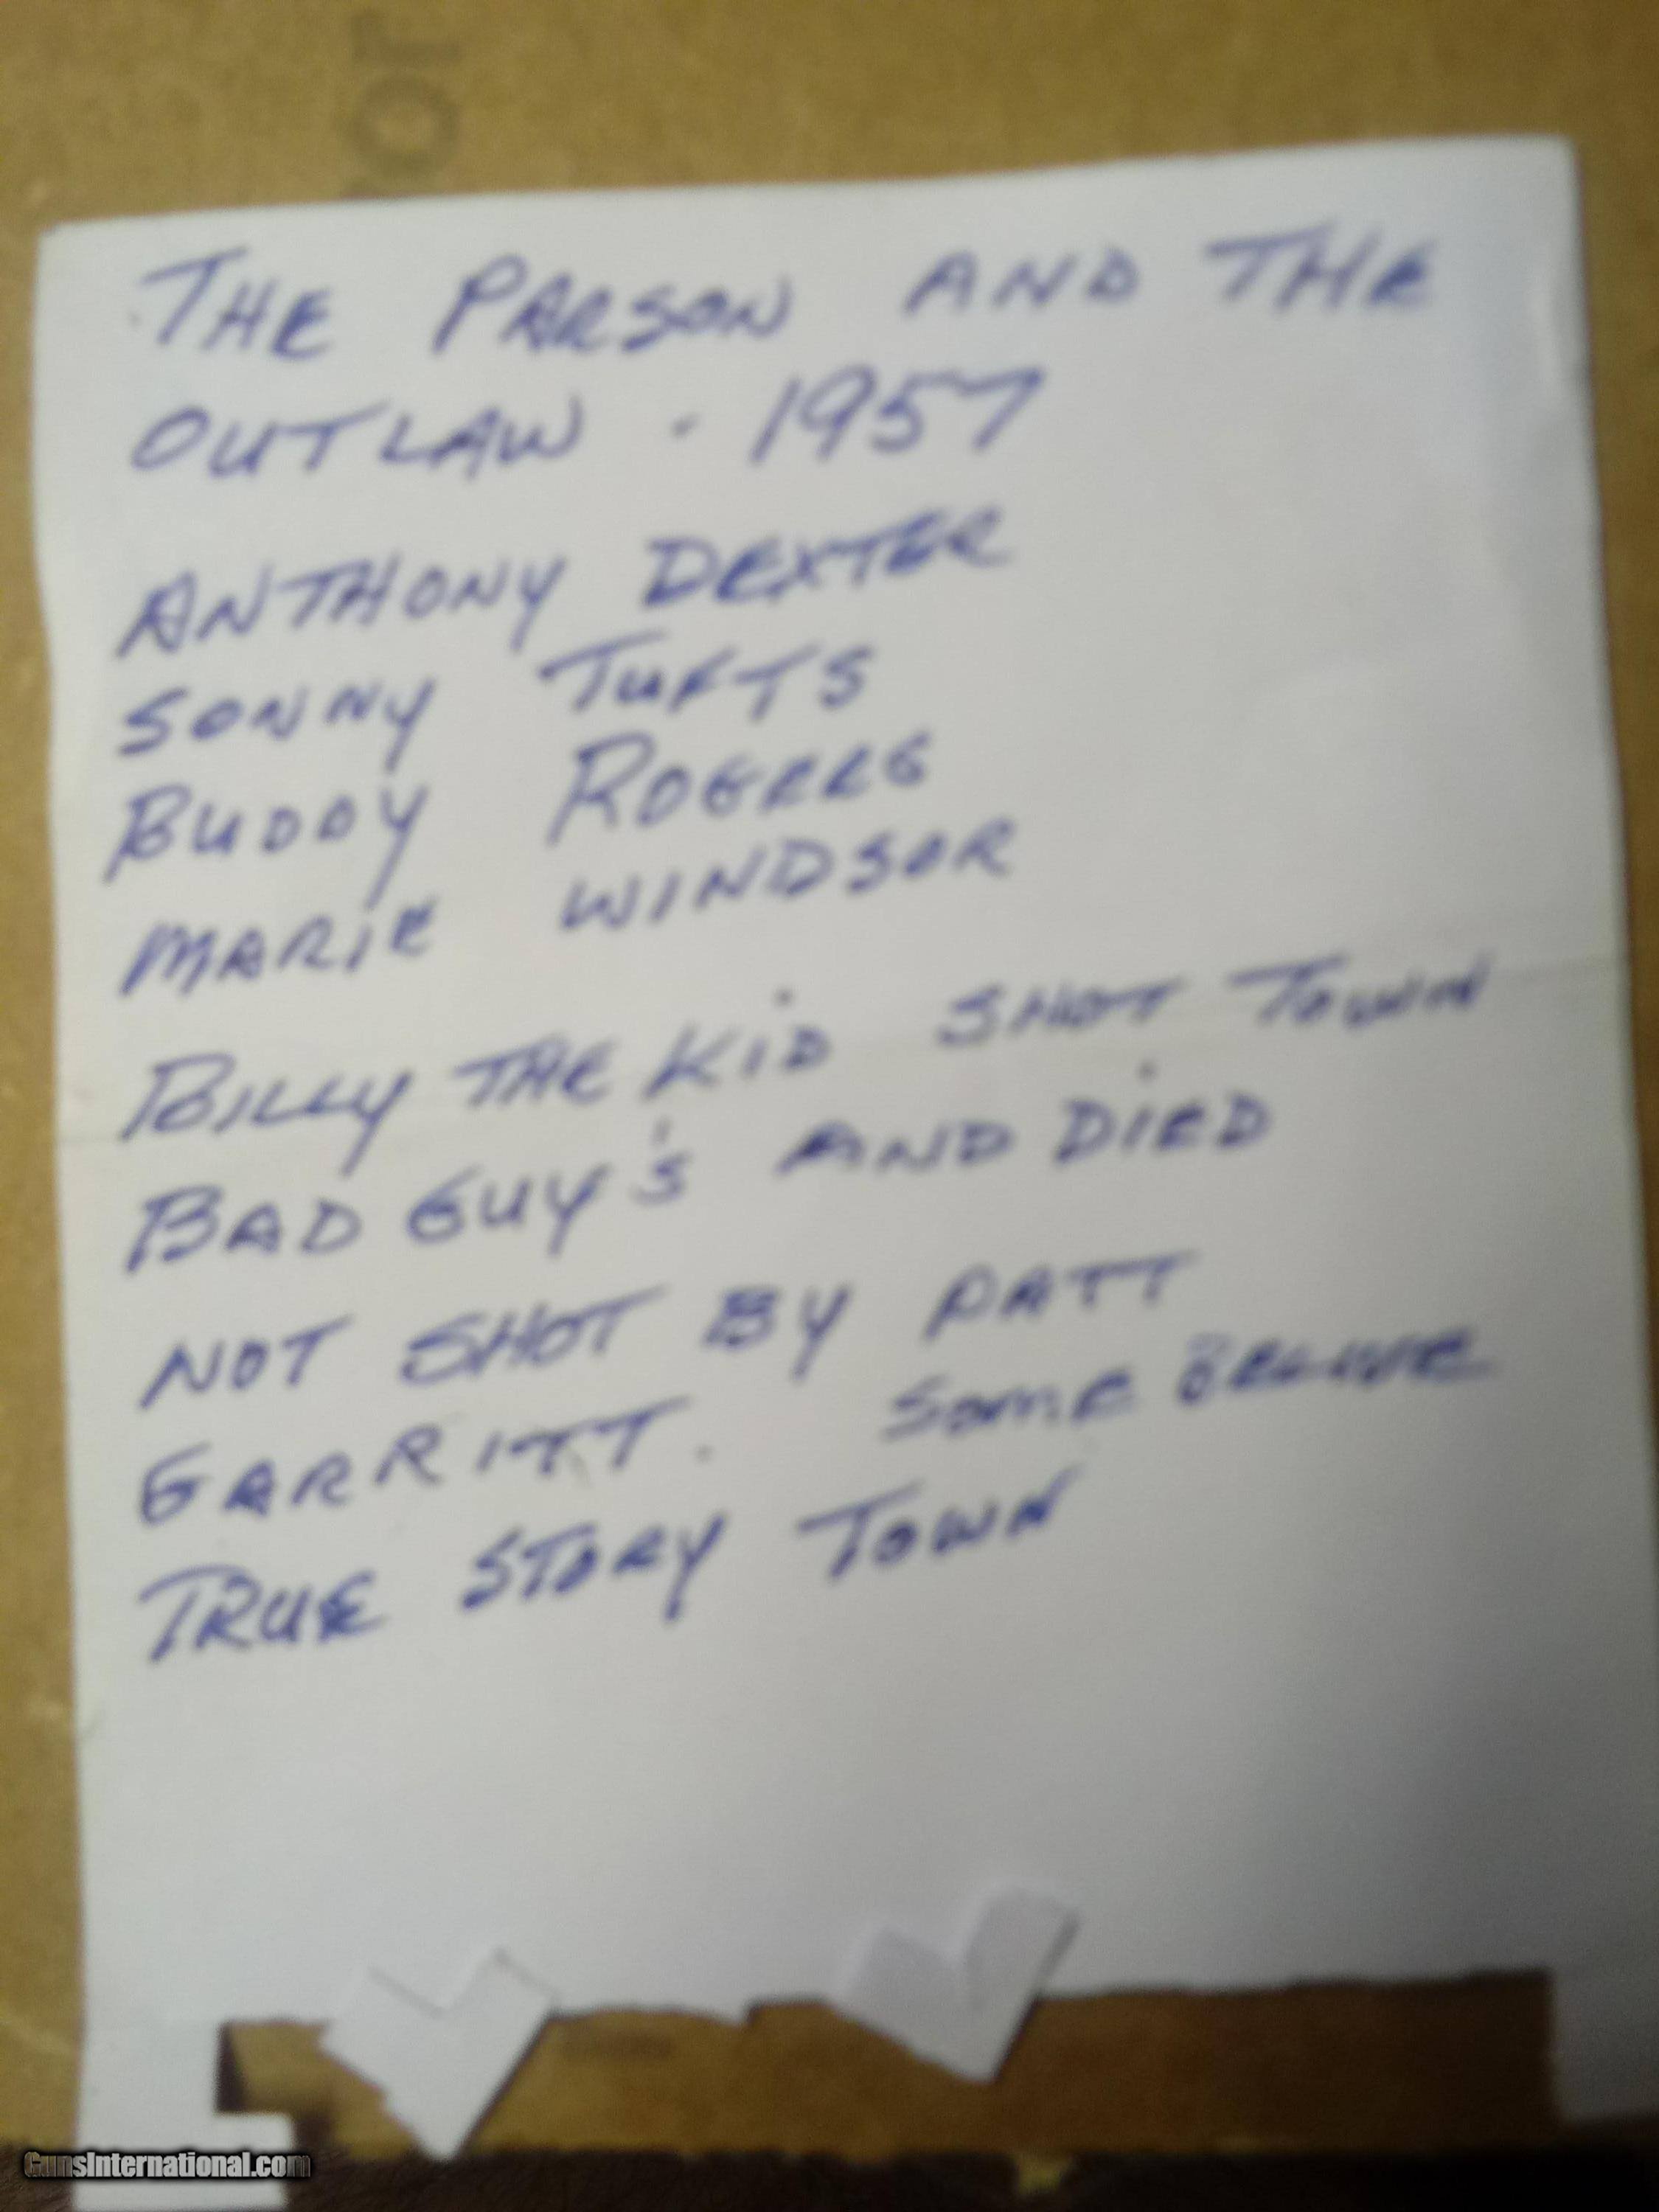 THE PARSON AND THE
OUTLAW - 1957
ANTHONY DEXTER
SONNY TUFTS
BUDDY ROGERS
MARIE WINDSOR
BILLY THE KID SHOT TOWN
BAD GUY'S AND DIED
NOT SHOT BY PATT
GARRITT. SOME BELIVE
TRUE STORY TOWN
GunsInternational.com